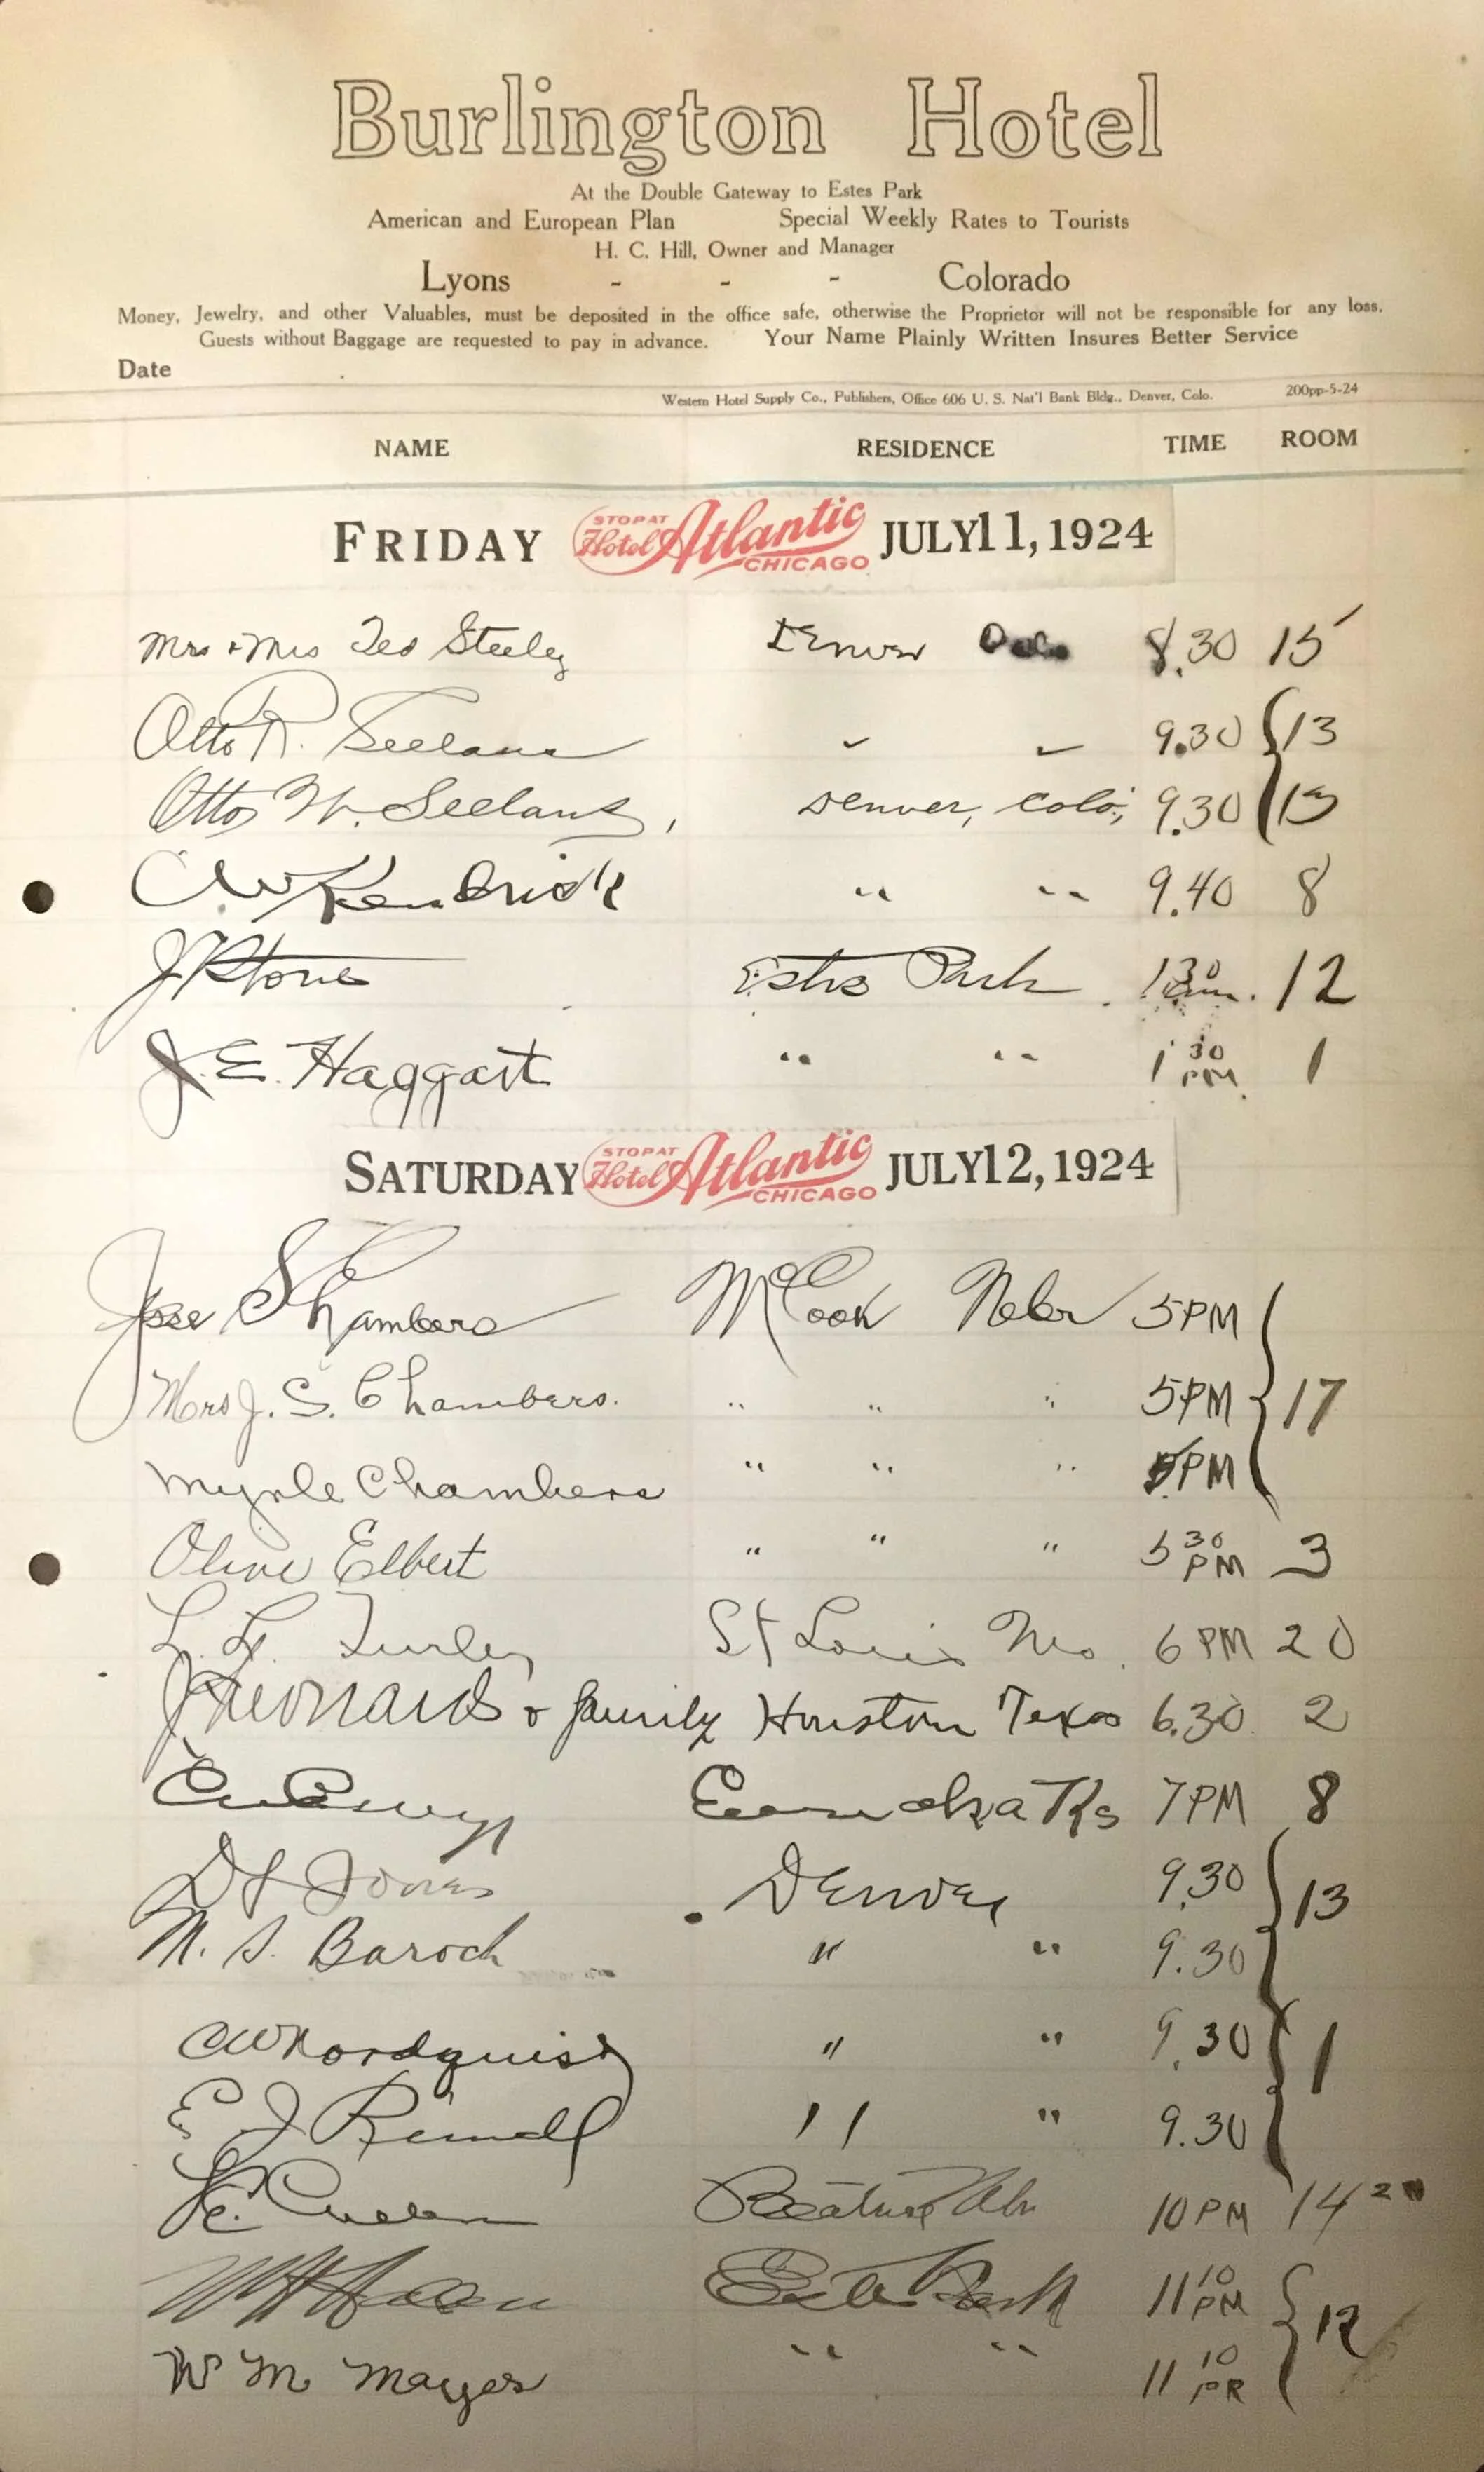 Burlington Hotel
At the Double Gateway to Estes Park
American and European Plan Special Weekly Rates to Tourists
H. C. Hill, Owner and Manager
Lyons - - - Colorado
Money, Jewelry, and other Valuables, must be deposited in the office safe, otherwise the Proprietor will not be responsible for any loss.
Guests without Baggage are requested to pay in advance. Your Name Plainly Written Insures Better Service
Date
Western Hotel Supply Co., Publishers, Office 606 U. S. Nat'l Bank Bldg., Denver, Colo. 200pp-5-24
NAME RESIDENCE TIME ROOM
FRIDAY STOP AT Hotel Atlantic CHICAGO JULY 11, 1924
Mrs + Mrs Ted Steeley Denver 8.30 15
Otto R. Seelaus " " 9.30 13
Otto W. Seelaus, Denver, Colo; 9.30 13
Kendrick " " 9.40 8
J P Stone Estes Park 12
J. E. Haggart " " 1 30 PM 1
SATURDAY STOP AT Hotel Atlantic CHICAGO JULY 12, 1924
Jose S Chambers McCook Nebr 5 PM
Mrs J. S. Chambers. " " " 5 PM 17
Myrle Chambers " " " 5 PM
Olive Elbert " " " 5 30 PM 3
L. F. Turley St Louis Mo. 6 PM 20
Leonard & family Houston Texas 6.30 2
Ks 7 PM 8
D S Jones Denver 9.30 13
M. S. Baroch " " 9.30
CW Nordquist " " 9.30 1
E J " " 9.30
Beatrice Nbr 10 PM 14
Estes Park 11 10 PM 12
W M Mayer " " 11 10